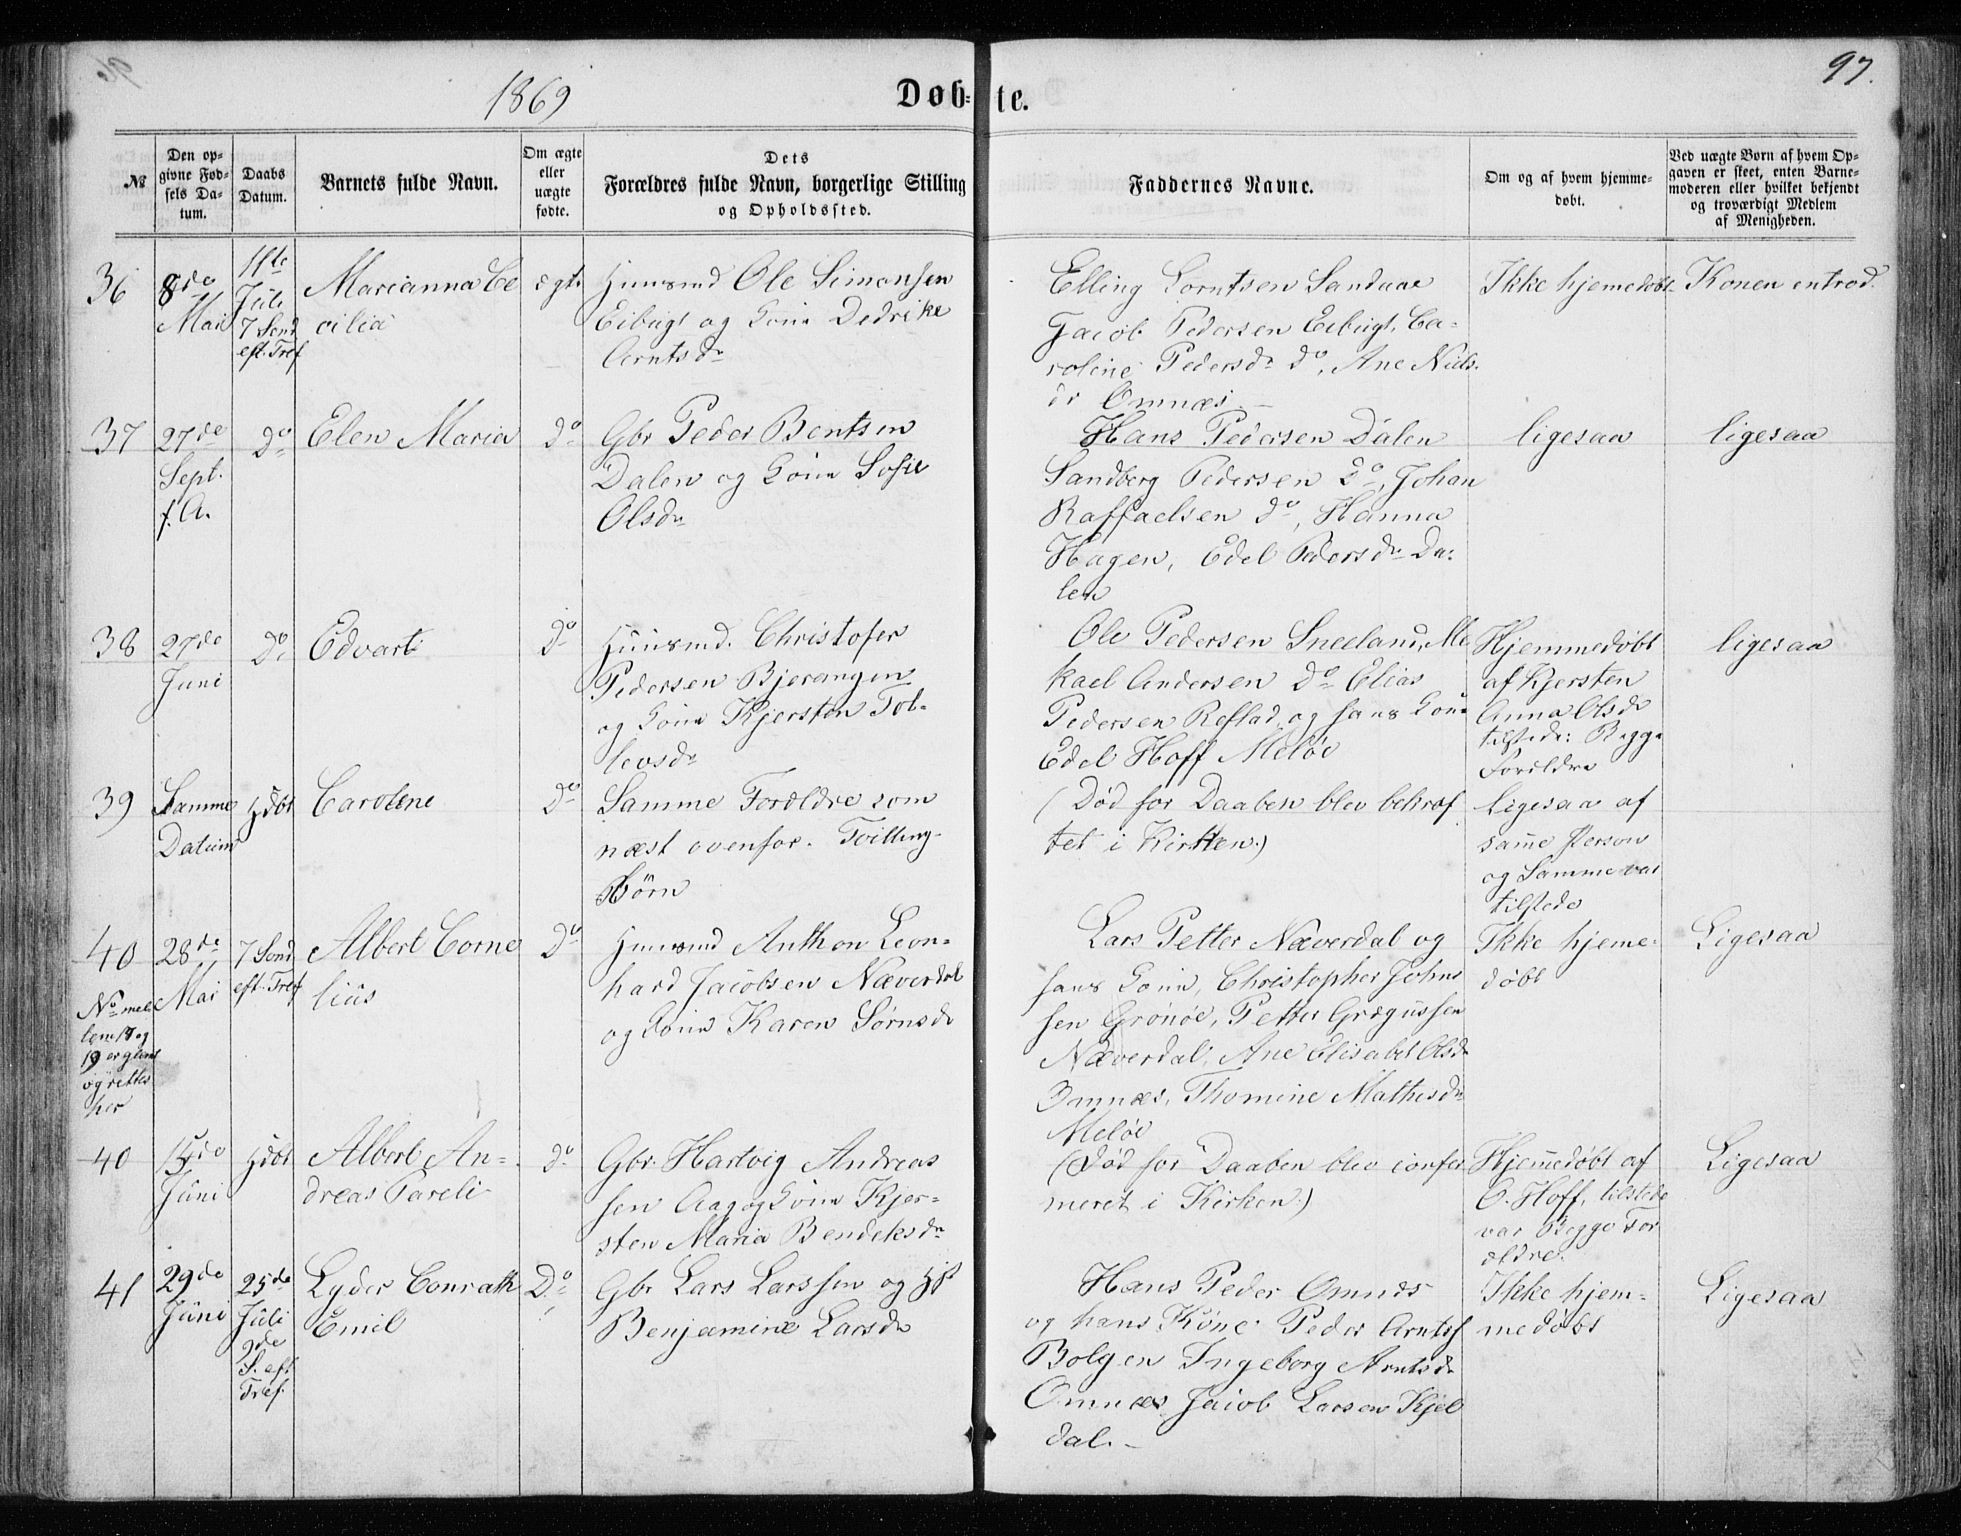 1869
Døb-
te.
97.
№
Den op-
givne Fød-
sels Da-
tum.
Daabs
Datum.
Barnets fulde Navn.
Om ægte
eller
uægte
fødte.
Dets
Forældres fulde Navn, borgerlige Stilling
og Opholdssted.
Faddernes Navne.
Om og af hvem hjemme-
døbt.
Ved uægte Børn af hvem Op-
gaven er skeet, enten Barne-
moderen eller hvilket bekjendt
og troværdigt Medlem
af Menigheden.
36
8de
Mai
11te
Juli
7 Sond
eft. Tref
Marianna Ce
cilia
ægte
Huusmd Ole Simonsen
Eibugt og Kone Dedrike
Arntsdr
Elling Lorntsen Sandaae
Jacob Pedersen Eibugt, Ca-
roline Pedersdr do, Ane Niels
dr Omnæs
Ikke hjemedøbt
Konen entrod.
37
27de
Sept.
f. A.
Do
Elen Maria
Do
Gbr Peder Bentsen
Dalen og Kone Sofie
Olsdr
Hans Pedersen Dalen
Sandberg Pedersen Do, Johan
Raffaelsen do, Hanna
Hagen, Edel Pedersdr Da-
len
ligesaa
ligesaa
38
27de
Juni
Do
Edvart
Do
Huusmd. Christofer
Pedersen Bjerangen
og Kone Kjersten Tol-
levsdr
Ole Pedersen Sneeland, Mi
kael Andersen Do Elias
Pedersen Refstad og hans Kone
Edel Hoff Meløe
Hjemmedøbt
af Kjersten
Anna Olsdr
tilstede: Begge
Forældre
ligesaa
39
Samme
Datum
Hdbt
Carolene
Do
Samme Forældre som
næst ovenfor. Tvilling-
Børn
(Død før Daaben blev bekræf
tet i Kirken.)
Ligesaa af
samme Person
og Samme var
tilstede
40
No mel
lem 18 og
19 er glemt
og rettes
her
28de
Mai
7 Sond
eft. Tref
Albert Corne
lius
Do
Huusmd Anthon Leon-
hard Jacobsen Næverdal
og Kone Karen Sørnsdr
Lars Petter Næverdal og
hans Kone, Christopher Johns
sen Grønøe, Petter Grægussen
Næverdal, Ane Elisabet Olsdr
Omnæs, Thomine Mathisdr
Meløe
Ikke hjeme-
døbt
Ligesaa
40
15de
Juni
Hdbt
Albert An-
dreas Pareli
do
Gbr. Hartvig Andreas
sen Aag og Kone Kjer-
sten Maria Bendeksdr
(Død før Daaben blev confer
meret i Kirken.)
Hjemmedøbt af
O. Hoff, tilstede
var Begge For
ældre.
Ligesaa
41
29de
Juni
25de
Juli
9de
S. eft.
Tref.
Lyder Conrath
Emil
Do
Gbr Lars Larssen og Hst
Benjamine Larsdr
Hans Peder Omnes
og hans Kone Peder Arntsf
Bolgen Ingeborg Arntsdr
Omnæs Jacob Larsen Kjel
dal.
Ikke hjem-
medøbt
Ligesaa